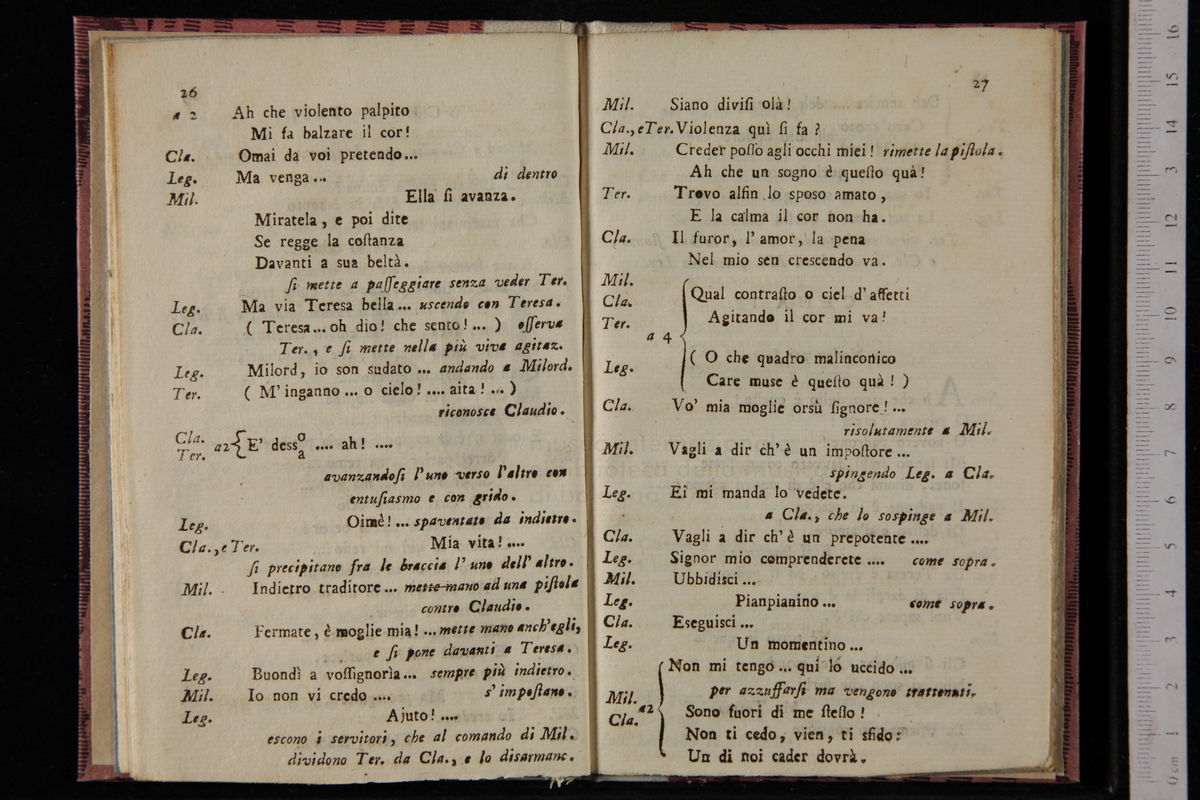 26
a 2 Ah che violento palpito
Mi fa balzare il cor!
Cla. Omai da voi pretendo...
Leg. Ma venga... di dentro
Mil. Ella ſi avanza.
Miratela, e poi dite
Se regge la coſtanza
Davanti a sua beltà.
ſi mette a paſſeggiare senza veder Ter.
Leg. Ma via Teresa bella... uscendo con Teresa.
Cla. ( Teresa... oh dio! che sento!... ) oſſerva
Ter., e ſi mette nella più viva agitaz.
Leg. Milord, io son sudato ... andando a Milord.
Ter. ( M'inganno ... o cielo! .... aita! ... )
riconosce Claudio.
Cla.
Ter. a2 { E' desso/a .... ah! ....
avanzandoſi l'uno verso l'altro con
entuſiasmo e con grido.
Leg. Oimè! ... spaventato da indietro.
Cla., e Ter. Mia vita! ....
ſi precipitano fra le braccia l'uno dell'altro.
Mil. Indietro traditore ... mette mano ad una piſtola
contro Claudio.
Cla. Fermate, è moglie mia! ... mette mano anch'egli,
e ſi pone davanti a Teresa.
Leg. Buondì a voſſignorìa... sempre più indietro.
Mil. Io non vi credo .... s'impoſtano.
Leg. Ajuto! ....
escono i servitori, che al comando di Mil.
dividono Ter. da Cla., e lo disarmanc.
27
Mil. Siano diviſi olà!
Cla., e Ter. Violenza quì ſi fa?
Mil. Creder poſſo agli occhi miei! rimette la piſtola.
Ah che un sogno è queſto quà!
Ter. Trovo alfin lo sposo amato,
E la calma il cor non ha.
Cla. Il furor, l'amor, la pena
Nel mio sen crescendo va.
Mil.
Cla. Qual contraſto o ciel d'affetti
Ter. Agitando il cor mi va!
a 4
Leg. ( O che quadro malinconico
Care muse è queſto quà! )
Cla. Vo' mia moglie orsù ſignore! ...
risolutamente a Mil.
Mil. Vagli a dir ch'è un impoſtore ...
spingendo Leg. a Cla.
Leg. Ei mi manda lo vedete.
a Cla., che lo sospinge a Mil.
Cla. Vagli a dir ch'è un prepotente ....
Leg. Signor mio comprenderete .... come sopra.
Mil. Ubbidisci ...
Leg. Pianpianino ... come sopra.
Cla. Eseguisci ...
Leg. Un momentino ...
Non mi tengo ... qui lo uccido ...
per azzuffarſi ma vengono trattenuti.
Mil.
Cla. a2 Sono fuori di me ſteſſo!
Non ti cedo, vien, ti sfido:
Un di noi cader dovrà.